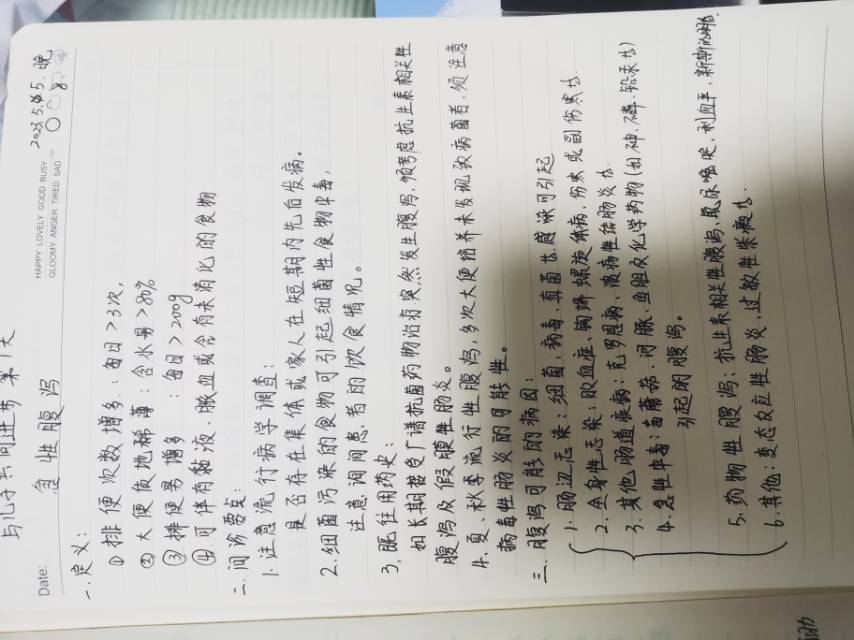 与儿子共同进步 第1天
Date:
急性腹泻
HAPPY LOVELY GOOD BUSY
GLOOMY ANGER TIRED SAD
2023.5.5.晚
一.定义:
①排便次数增多:每日>3次,
②大便质地稀薄:含水量>80%
③排便量增多:每日>200g
④可伴有黏液、脓血或含有未消化的食物
二.问诊要点:
1.注意流行病学调查:
是否存在集体或家人在短期内先后发病。
2.细菌污染的食物可引起细菌性食物中毒,
注意询问患者的饮食情况。
3.既往用药史:
如长期接受广谱抗菌药物治疗突然发生腹泻,须考虑抗生素相关性
腹泻及假膜性肠炎。
4.夏、秋季流行性腹泻,多次大便培养未发现致病菌者,须注意
病毒性肠炎的可能性。
三.腹泻可能的病因:
1.肠道感染:细菌,病毒,真菌等感染可引起
2.全身性感染:败血症、钩端螺旋体病,伤寒或副伤寒等
3.其他肠道疾病:克罗恩病、溃疡性结肠炎等
4.急性中毒:毒蘑菇、河豚、鱼胆及化学药物(如砷、磷、铅汞等)
引起的腹泻。
5.药物性腹泻:抗生素相关性腹泻,氟尿嘧啶,利血平、新斯的明等
6.其他:变态反应性肠炎,过敏性紫癜等.